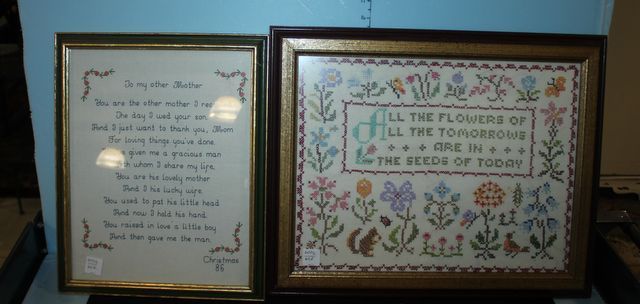 To my other Mother
You are the other mother I re
The day I wed your son.
And I just want to thank you, Mom
For loving things you've done.
given me a gracious man
whom I share my life,
You are his lovely mother
And I his lucky wife.
You used to pat his little head
And now I hold his hand.
You raised in love a little boy
And then gave me the man.
Christmas
86
ALL THE FLOWERS OF
ALL THE TOMORROWS
ARE IN
THE SEEDS OF TODAY